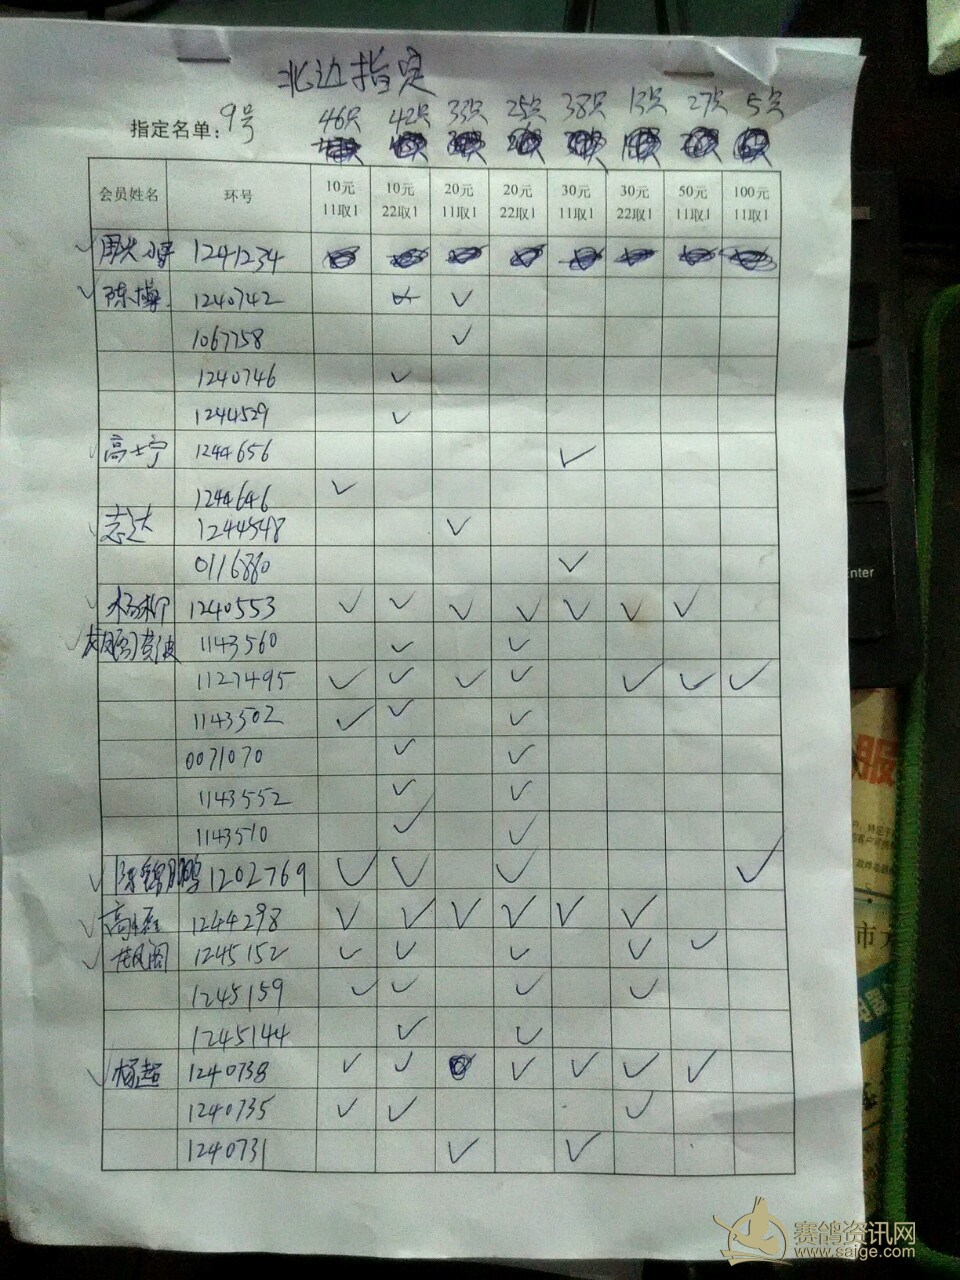 北边指定
46只 42只 33只 25只 38只 13只 27只 5只
指定名单: 9号
会员姓名 环号 10元 11取1 10元 22取1 20元 11取1 20元 22取1 30元 11取1 30元 22取1 50元 11取1 100元 11取1
1241234
陈博 1240742 ✓
1067758 ✓
1240746 ✓
1244529 ✓
高士宁 1244656 ✓
1244646 ✓
志达 1244548 ✓
0116880 ✓
杨柳 1240553 ✓ ✓ ✓ ✓ ✓ ✓ ✓
1143560 ✓ ✓
1127495 ✓ ✓ ✓ ✓ ✓ ✓ ✓
1143502 ✓ ✓ ✓
0071070 ✓ ✓
1143552 ✓ ✓
1143510 ✓ ✓
陈锦鹏 1202769 ✓ ✓ ✓ ✓
1244298 ✓ ✓ ✓ ✓ ✓ ✓
1245152 ✓ ✓ ✓ ✓ ✓
1245159 ✓ ✓ ✓ ✓
1245144 ✓ ✓
杨超 1240738 ✓ ✓ ✓ ✓ ✓ ✓
1240735 ✓ ✓ ✓
1240731 ✓ ✓
Enter
服
市方
赛鸽资讯网
www.saige.com